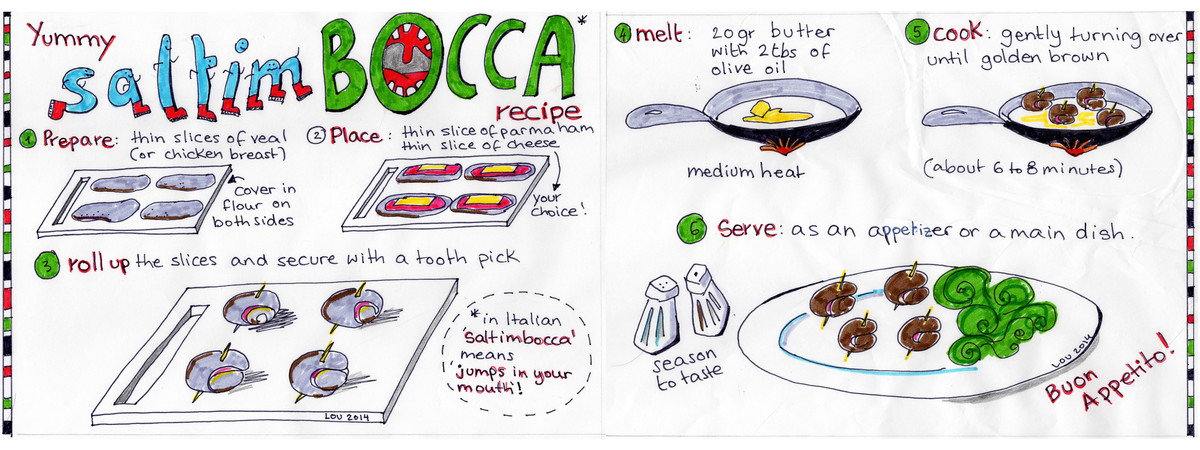 Yummy
saltimBOCCA*
recipe
1 Prepare: thin slices of veal
(or chicken breast)
Cover in
flour on
both sides
2 Place: thin slice of parma ham
thin slice of cheese
your
choice!
3 roll up the slices and secure with a tooth pick
*in Italian
'saltimbocca'
means
'jumps in your
mouth!
LOU 2014
4 melt: 20gr butter
with 2tbs of
olive oil
medium heat
5 cook: gently turning over
until golden brown
(about 6 to 8 minutes)
6 Serve: as an appetizer or a main dish.
season
to taste
LOU 2014
Buon
Appetito!